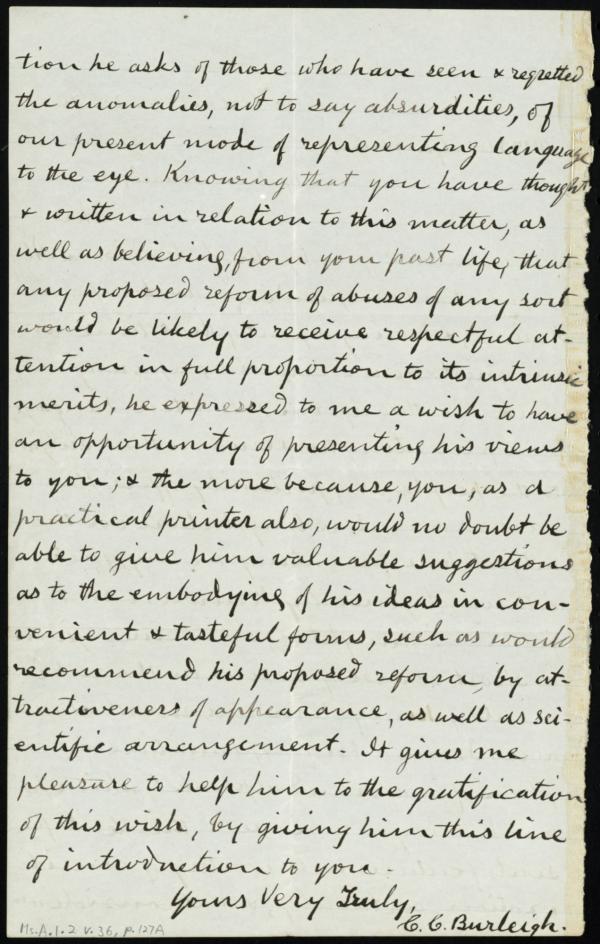 tion he asks of those who have seen & regretted
the anomalies, not to say absurdities, of
our present mode of representing language
to the eye. Knowing that you have thought
& written in relation to this matter, as
well as believing, from your past life, that
any proposed reform of abuses of any sort
would be likely to receive respectful at-
tention in full proportion to its intrinsic
merits, he expressed to me a wish to have
an opportunity of presenting his views
to you; & the more because, you, as a
practical printer also, would no doubt be
able to give him valuable suggestions
as to the embodying of his ideas in con-
venient & tasteful forms, such as would
recommend his proposed reform, by at-
tractiveness of appearance, as well as sci-
entific arrangement. It gives me
pleasure to help him to the gratification
of this wish, by giving him this line
of introduction to you.
Yours Very Truly,
C. C. Burleigh.
Ms.A.1.2 v.36, p.127A